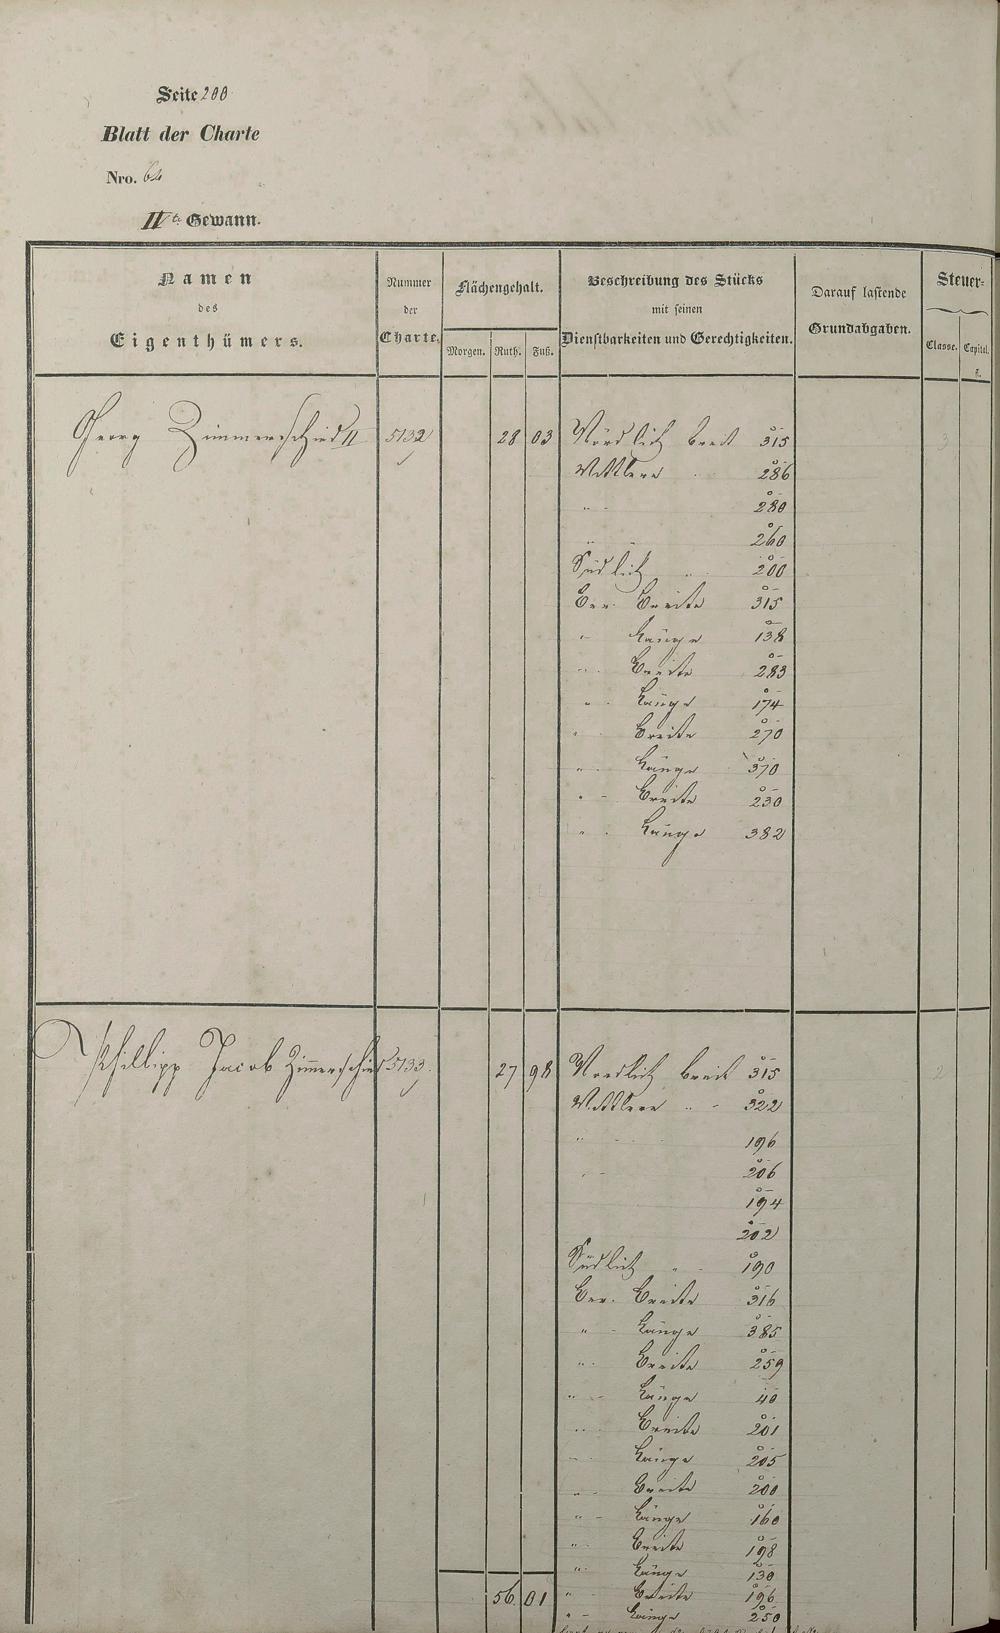 Seite 200
Blatt der Charte
Nro. 64
IIte Gewann.
Namen des Eigenthümers.
Nummer der Charte.
Flächengehalt.
Morgen. Ruth. Fuß.
Beschreibung des Stücks mit seinen Dienstbarkeiten und Gerechtigkeiten.
Darauf lastende Grundabgaben.
Steuer-
Classe. Capital. fl.
Georg Zimmerschied II 5132 28 03 Nördlich breit 315 3
Mittlere 286
" 280
" 260
Südlich " 200
Ber. Breite 315
" Länge 138
" Breite 283
" Länge 174
" Breite 270
" Länge 370
" Breite 230
" Länge 382
Phillipp Jacob Zimmerschied 5133. 27 98 Nördlich breit 315 2
Mittlere " 322
" 196
" 206
194
202
Südlich " 190
Ber. Breite 316
" Länge 385
" Breite 259
" Länge 40
" Breite 201
" Länge 205
" Breite 200
" Länge 160
" Breite 198
" Länge 130
56. 01 " Breite 196
" Länge 250